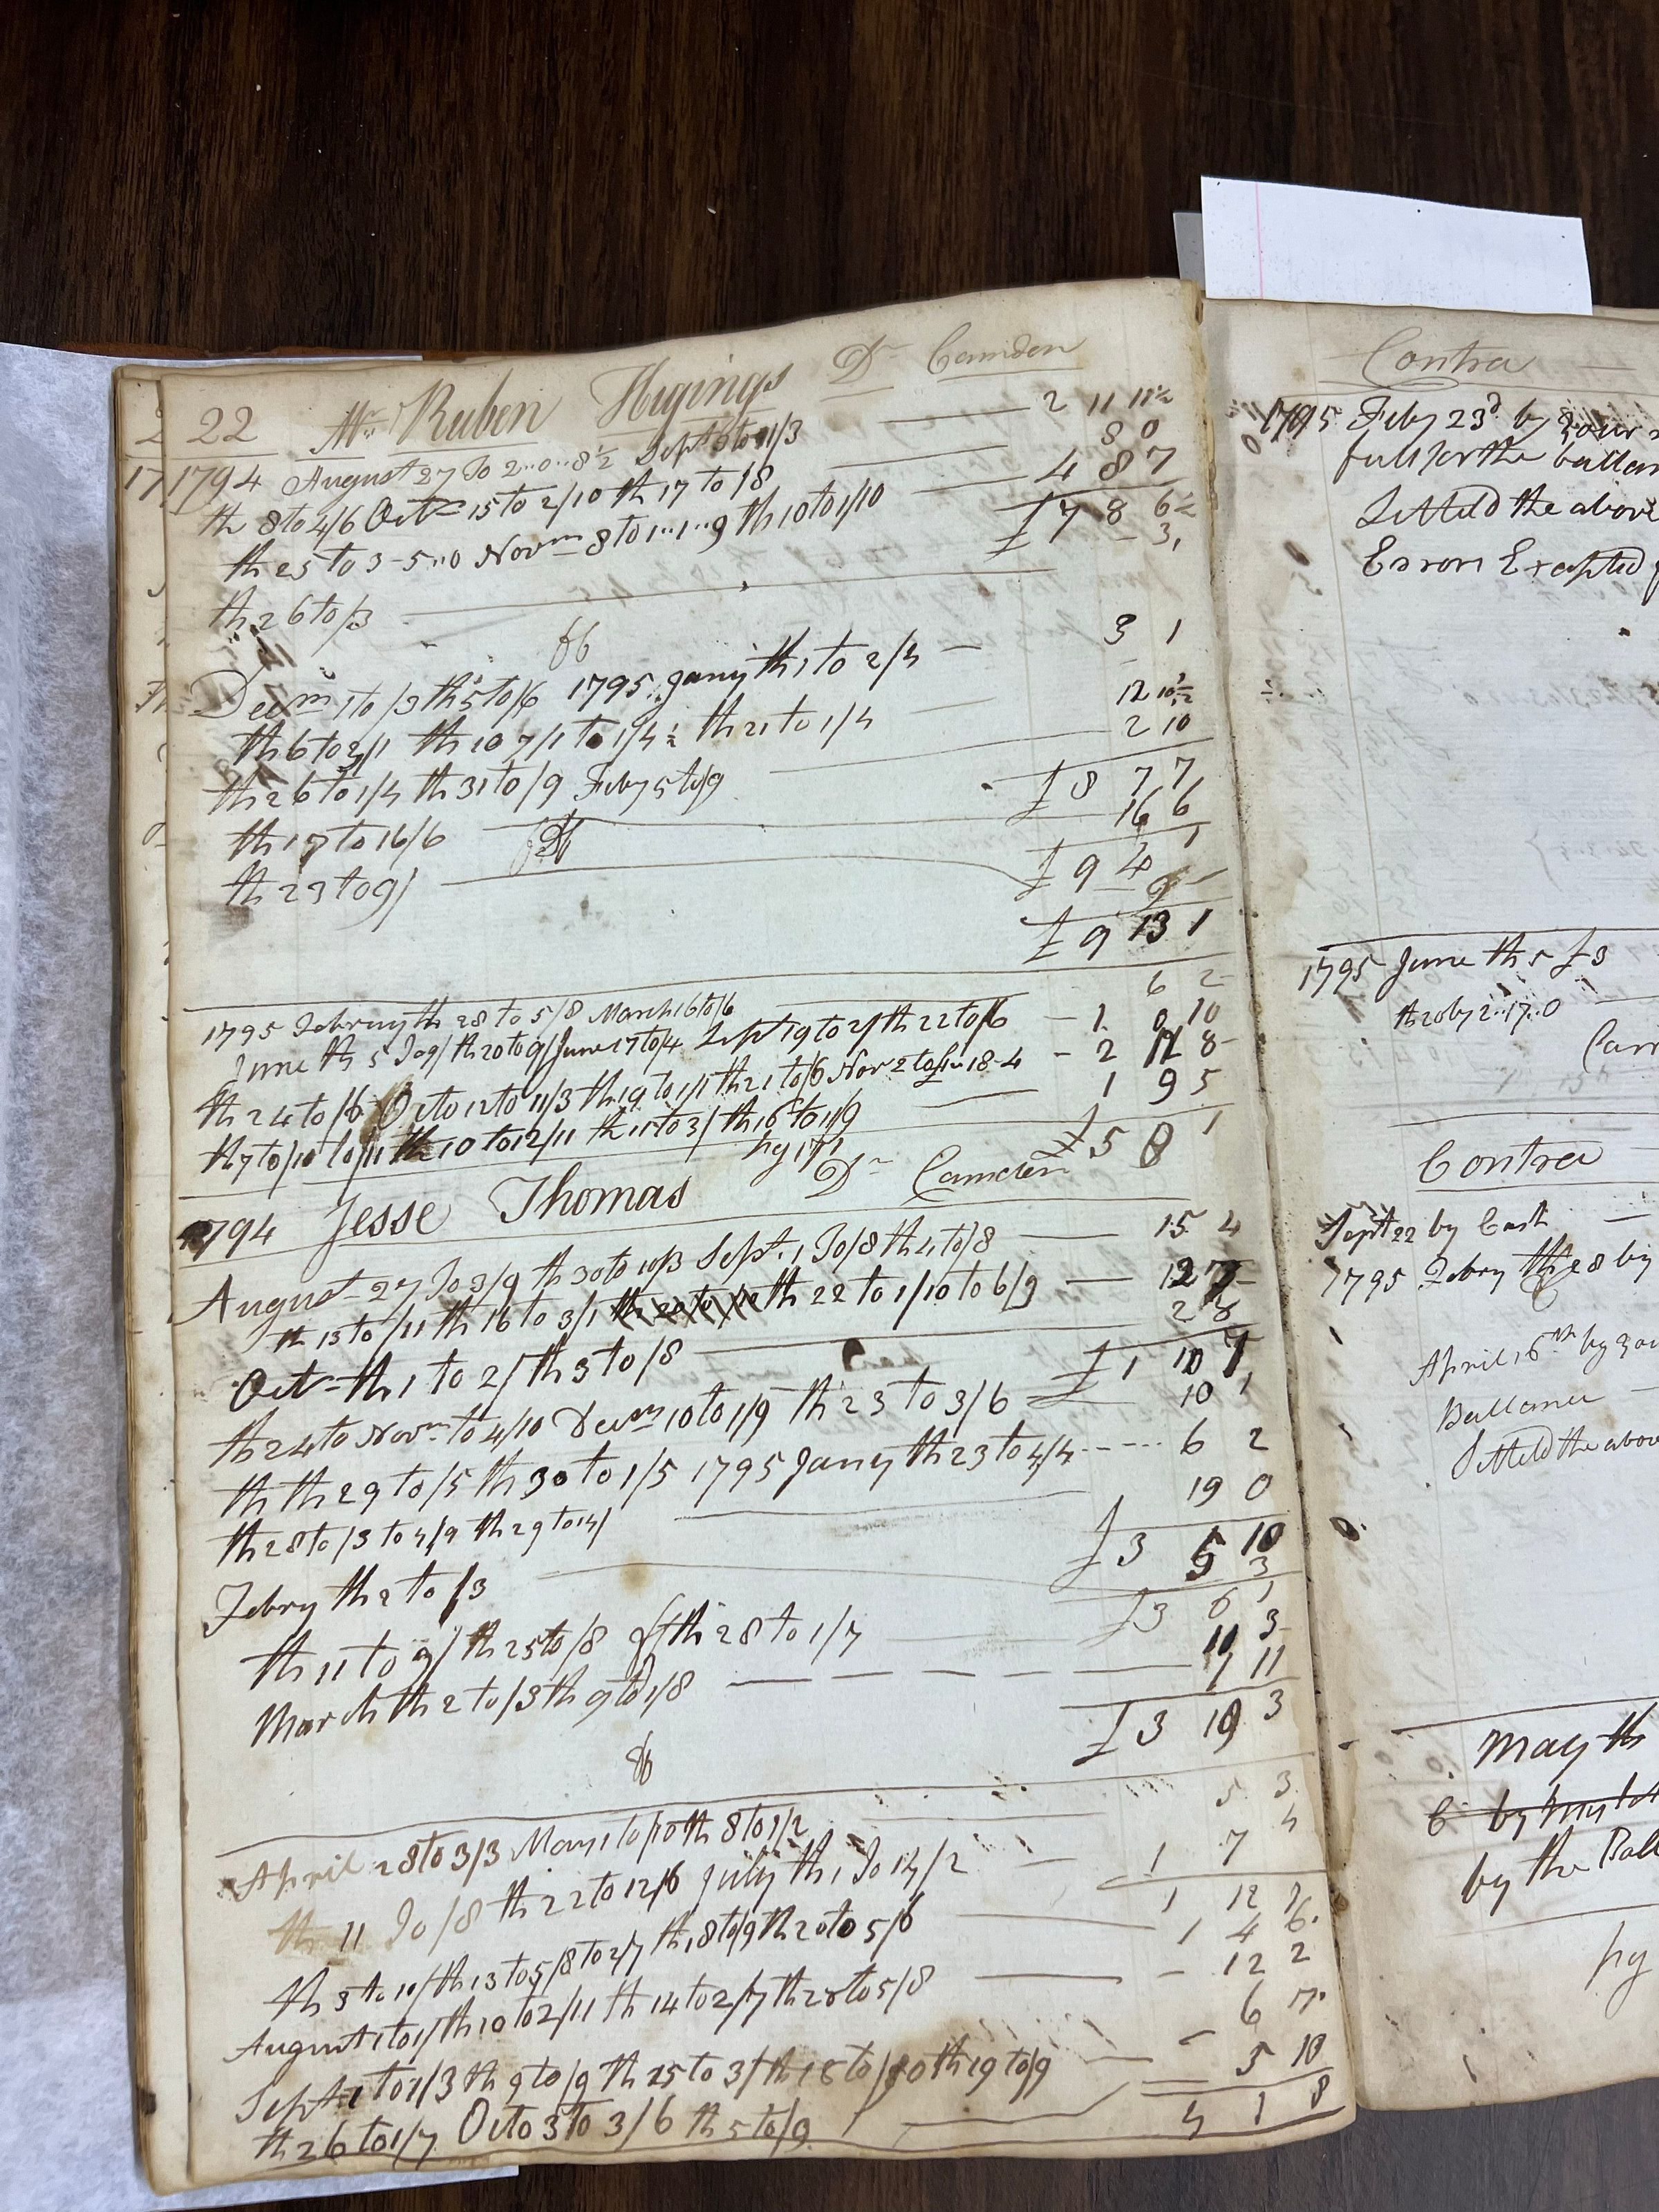 22 Mr Ruben Higings Dr Camden
1794 August 27 To 2..0..8½ Sept 9 to 11/3 2 11 11½
th 8 to 4/6 Oct 15 to 2/10 th 17 to /8 8 0
th 25 to 3-5..0 Novm 8 to 1..1..9 th 10 to 1/10 4 8 7
£7 8 6½
th 26 to /3 3
Decm 1 to /3 th 5 to /6 1795 Jany th 1 to 2/4 3 1
th 6 to th 10 to 1/4½ th 21 to 1/4 12 10½
th 26 to 1/4 th 31 to /9 Feby 5 to /9 2 10
£8 7 7
th 17 to 16/6 16 6
£9 4 1
th 23 to 9/ 9
£9 13 1
1795 Februy th 28 to 5/8 March 16 to /6 6 2
June th 5 To 9/ th 20 to 9/ June 17 to /4 Sept 19 to 2/ th 22 to /6 1 0 10
th 24 to /6 Octo 12 to 11/3 th 19 to 1/1 th 21 to /6 Nov 2 to 18-4 2 11 8
th 7 to /10 to /11 th 10 to 12/11 th 11 to 3/ th 16 to 11/9 1 9 5
£5 8 1
1794 Jesse Thomas Dr Camden
August 27 To 3/9 th 30 to 10/3 Sept. 1 To /8 th 4 to /8 15 4
th 13 to /11 th 16 to 3/1 th 22 to 1/10 to 6/9 12 7
Oct th 1 to 2/ th 3 to /8 2 8
£1 10 7
th 24 to Novm to 4/10 Decm 10 to 1/9 th 23 to 3/6 10 1
th th 29 to /5 th 30 to 1/5 1795 Jany th 23 to 4/4 6 2
th 28 to /3 to 4/9 th 29 to 14/ 19 0
£3 5 10
Febry th 2 to /3 3
£3 6 1
th 11 to 9/ th 25 to /8 th 28 to 1/7 11 3
March th 2 to /3 th 9 to 1/8 1 11
£3 19 3
April 28 to 3/3 May 1 to /10 th 8 to 1/2 5 3
th 11 To /8 th 22 to 12/6 July th 1 To 14/2 1 7 4
1 12 7
th 3 to 10/ th 13 to 5/8 to 2/7 th 18 to /9 th 20 to 5/6 1 4 6
August 1 to 1/ th 10 to 2/11 th 14 to 2/7 th 28 to 5/8 12 2
Sept 1 to 1/3 th 9 to /9 th 25 to 3/ th 18 to /10 th 19 to /9 6 7
th 26 to 1/7 Octo 3 to 3/6 th 5 to /9 5 10
4 1 8
Contra
1795 Feby 23d by your
full for the ballan
Setteld the above
Errors Excepted
1795 June th 5 £3
th 20 by 2..17..0
Contra
Sept 22 by Cash
1795 Febry th 28 by
April 16th by you
Ballance
Setteld the above
May th
by the Ball